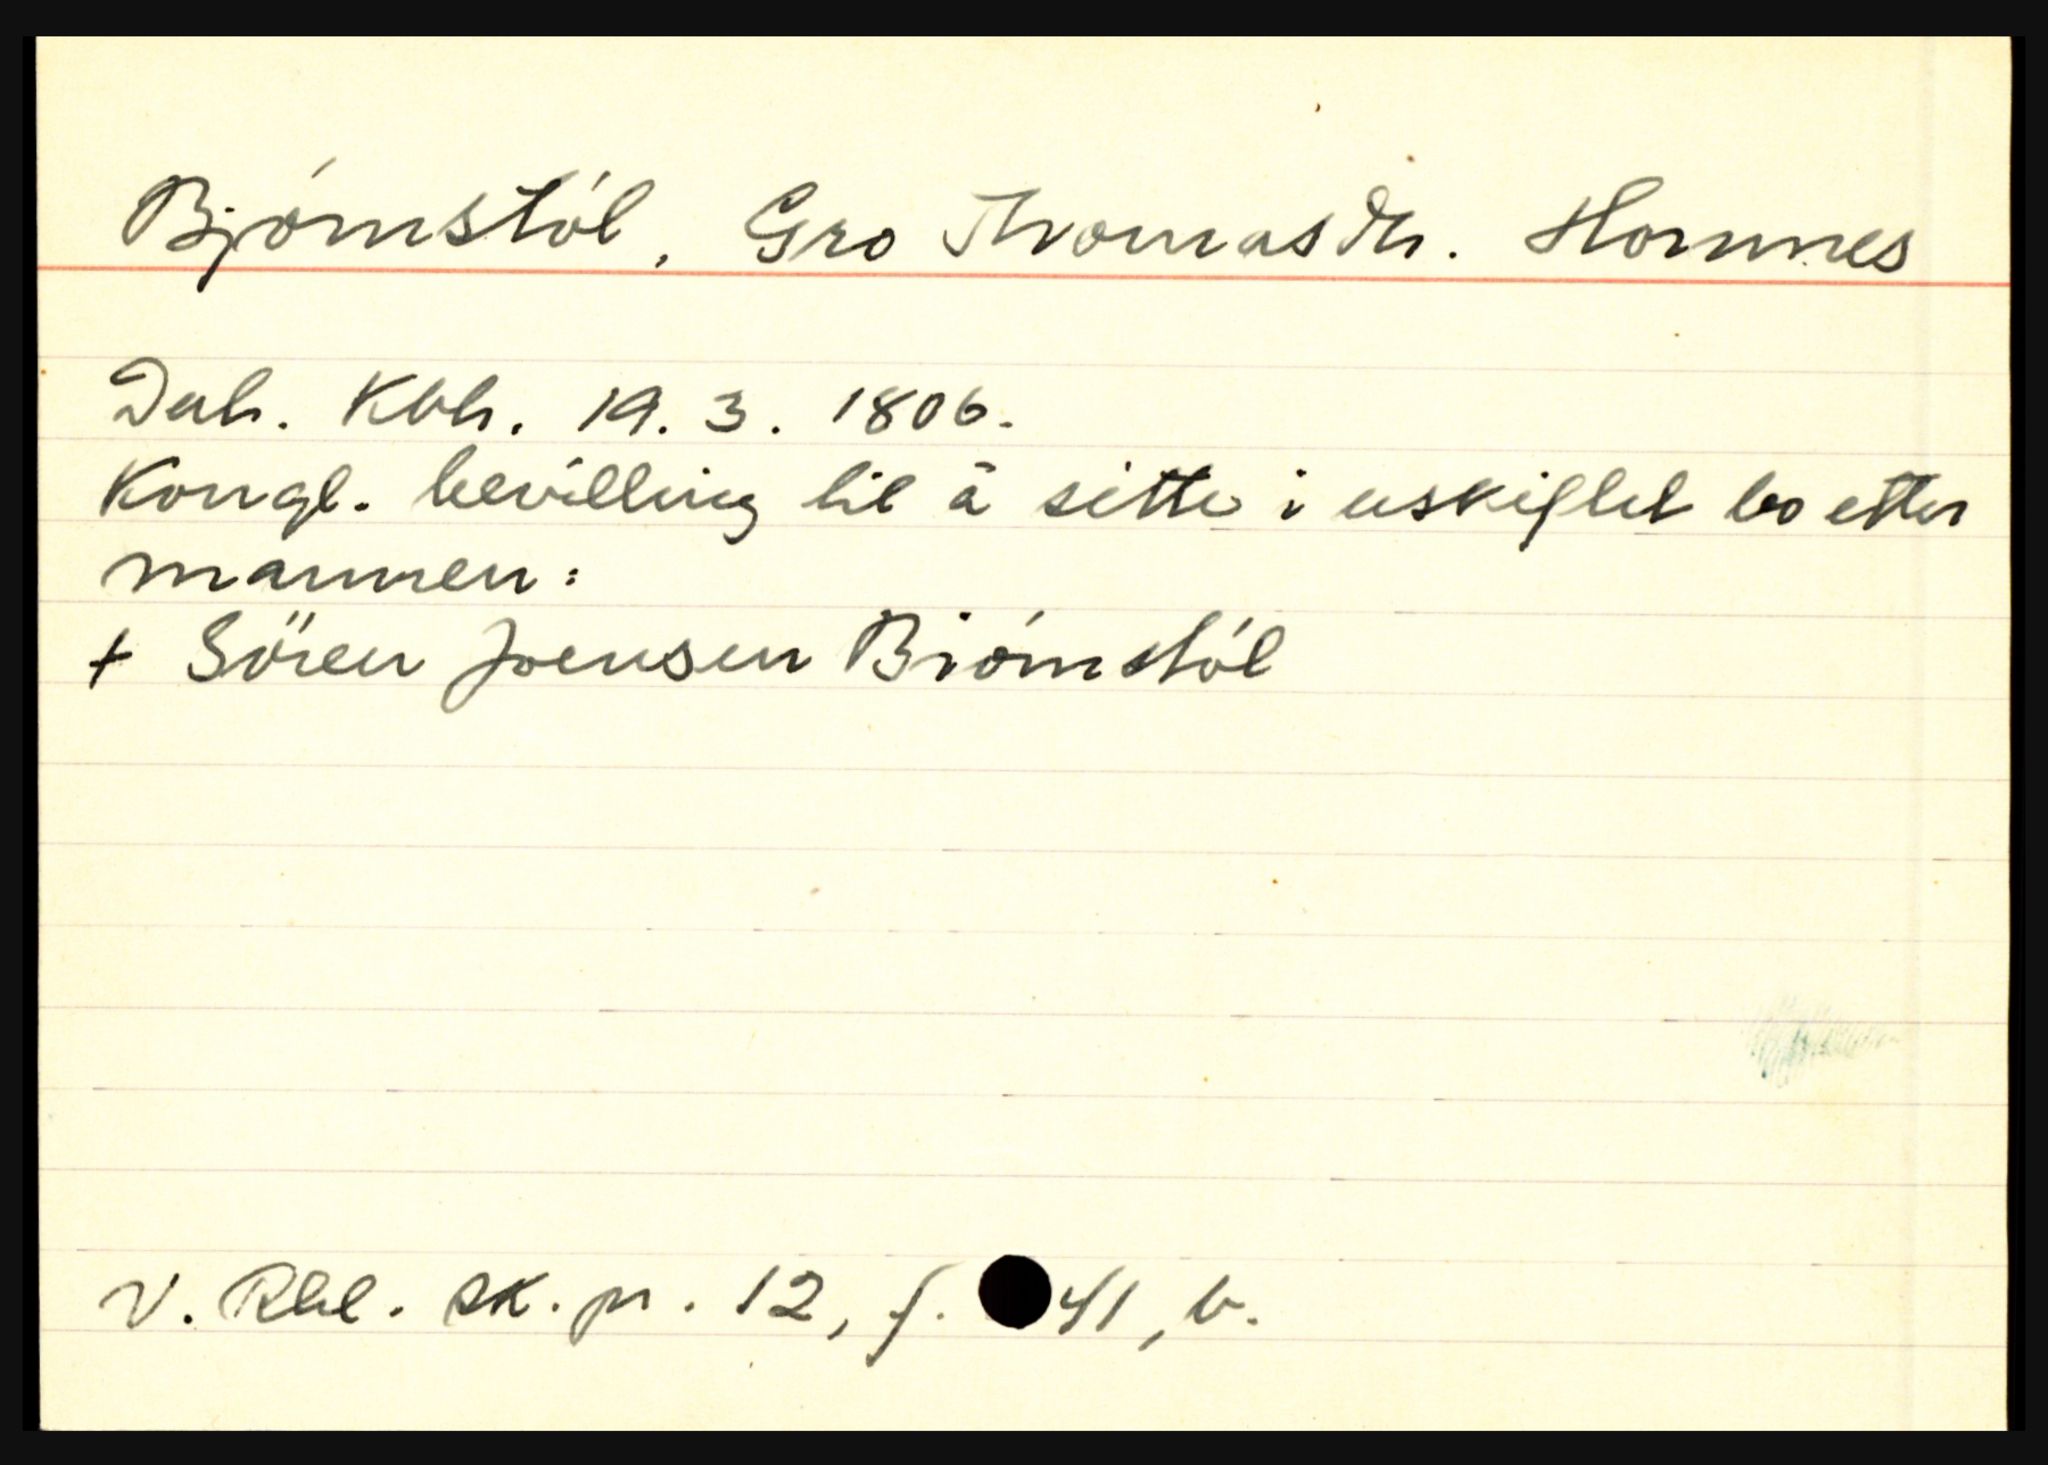 Bjørnstøl, Gro Thomasdtr. Hornnes
Dat. Kbh. 19.3.1806.
Kongl. bevilling til å sitte i uskiftet bo etter
mannen:
+ Sören Joensen Biørnstøl
V. Rbl. sk. pr. 12, f. 41, b.